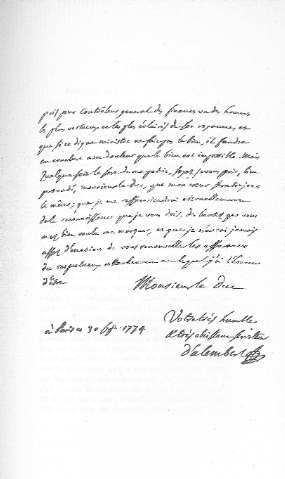 pris pour contrôleur general des finances un des hommes
les plus vertueux et les plus éclairés de son royaume, et
que si ce digne ministre ne fait pas le bien, il faudra
en conclure que le bien est impossible. Mais
quelque soit le sort de ma patrie, soyez
persuadé, monsieur le duc, que mon cœur sera toujours
le même, que je me ressouviendrai éternellement
de la reconnoissance que je vous dois, des bontés que vous
avez bien voulu me marquer, et que je n'aurai jamais
assez d'occasions de vous renouveller les assurances
du respectueux attachement avec lequel j'ai l'honneur
d'être
Monsieur le Duc
à Paris ce 30 1774
Votre très humble
et très obéissant serviteur
d'alembert